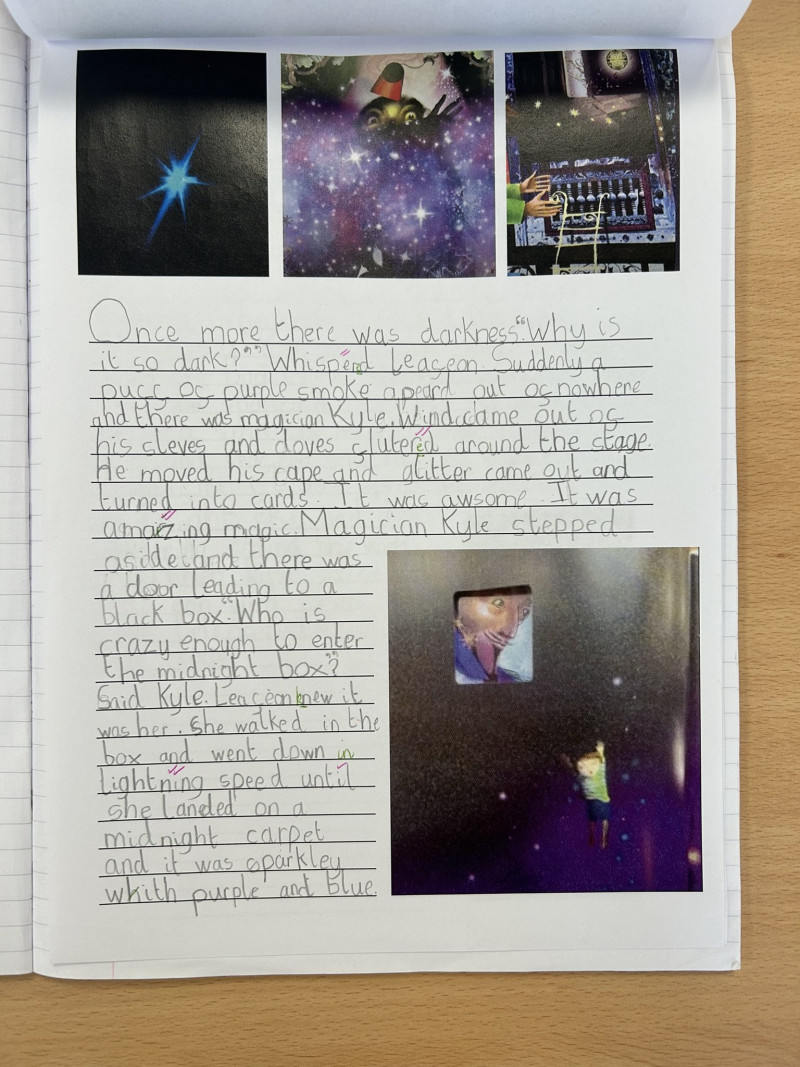 Once more there was darkness. "Why is
it so dark?" Whisperd Leaf​eon. Suddenly a
puff of purple smoke apeard out of nowhere
and there was magician Kyle. Wind came out of
his sleves and doves flutered around the stage.
He moved his cape and glitter came out and
turned into cards. It was awsome. It was
amaizing magic. Magician Kyle stepped
aside and there was
a door leading to a
black box. "Who is
crazy enough to enter
the midnight box?"
Said Kyle. Leafeon knew it
was her. She walked in the
box and went down in
lightning speed until
she landed on a
midnight carpet
and it was sparkley
whith purple and blue.